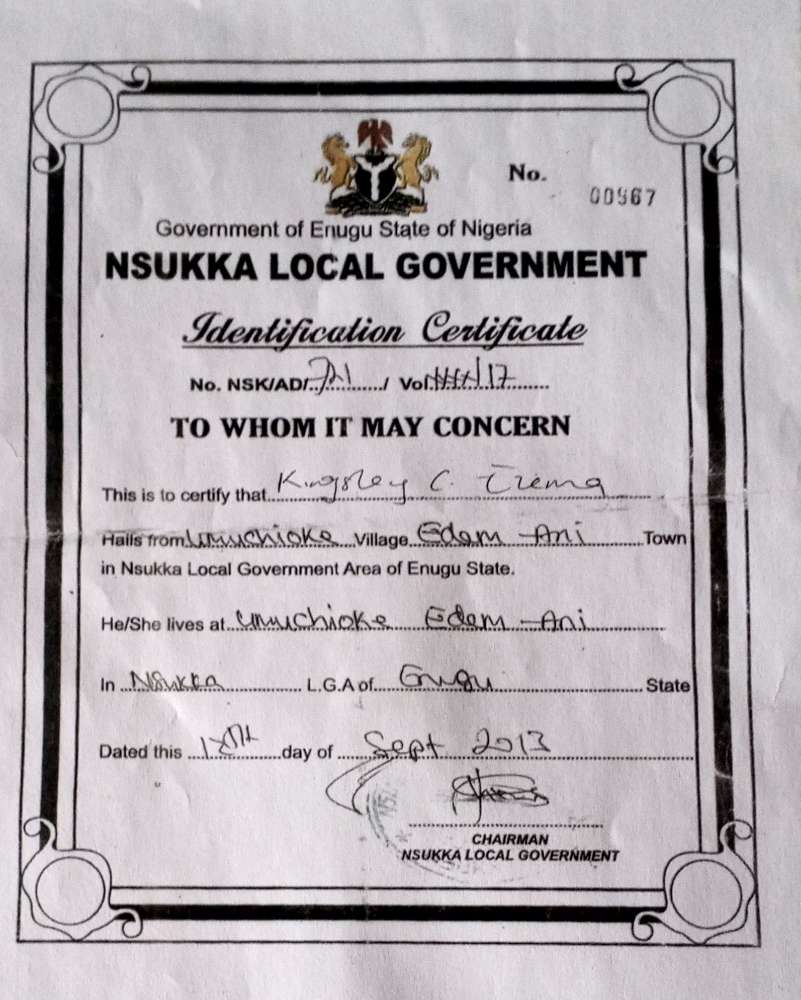 No.
00967
Government of Enugu State of Nigeria
NSUKKA LOCAL GOVERNMENT
Identification Certificate
No. NSK/AD/............/ Vol............17........
TO WHOM IT MAY CONCERN
This is to certify that Kingsley C.
Hails from Umuchioke Village Edem - Ani Town
in Nsukka Local Government Area of Enugu State.
He/She lives at Umuchioke Edem - Ani
In Nsukka L.G.A of Enugu State
Dated this 18th day of Sept 2013
CHAIRMAN
NSUKKA LOCAL GOVERNMENT